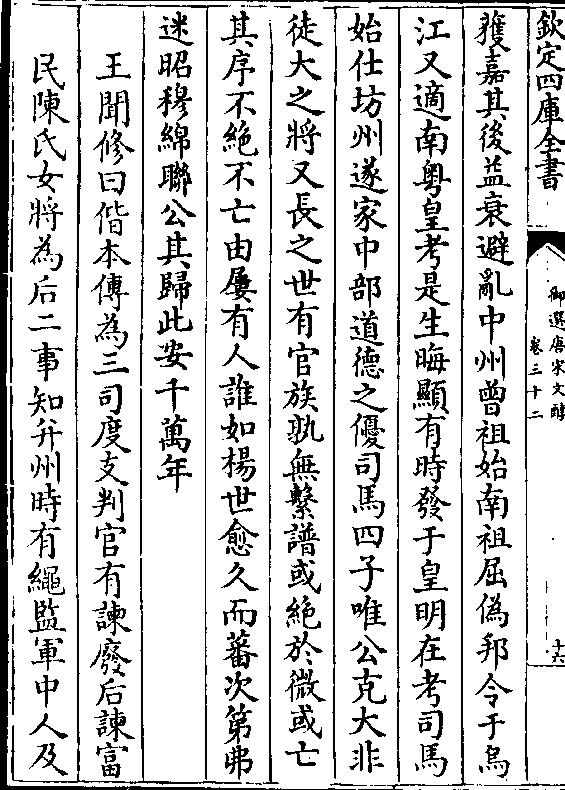 欽定四庫全書
御選唐宋文醇
卷三十二
十六
穫嘉其後益衰避亂中州曽祖始南祖屈偽邦令于烏
江又適南粤皇考是生晦顯有時發于皇明在考司馬
始仕坊州遂家中部道德之優司馬四子唯公克大非
徒大之將又長之世有官族孰無繫譜或絶於微或亡
其序不絶不亡由屢有人誰如楊世愈久而蕃次第弗
迷昭穆綿聯公其歸此安千萬年
王聞修曰偕本傳為三司度支判官有諫廢后諫富
民陳氏女將為后二事知并州時有繩監軍中人及